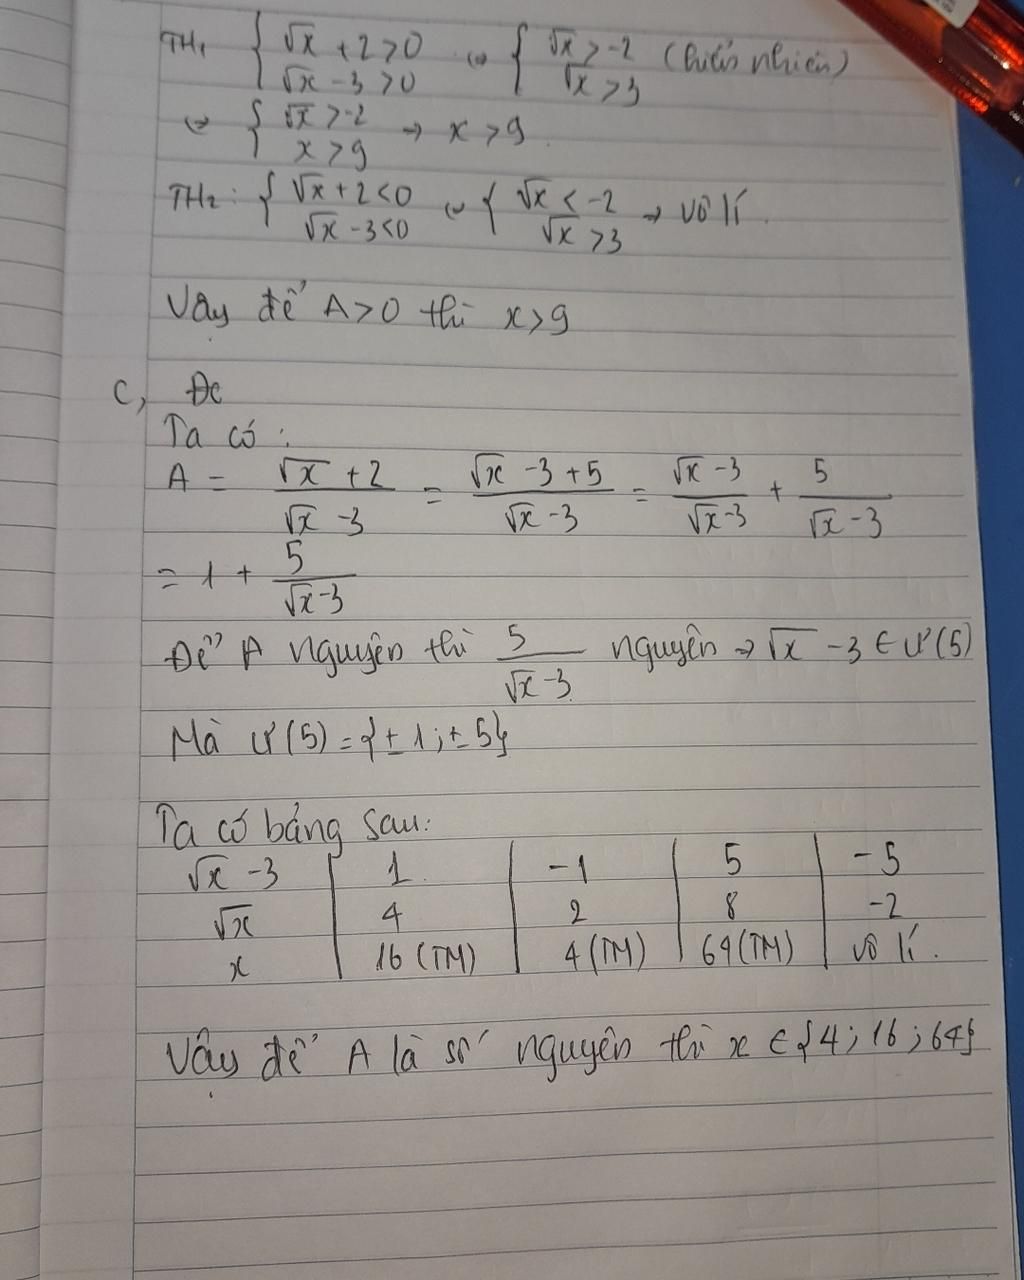 TH₁ { √x + 2 > 0 ⇔ { √x > -2 (hiển nhiên)
√x - 3 > 0 √x > 3
⇔ { √x > -2 → x > 9
x > 9
TH₂: { √x + 2 < 0 ⇔ { √x < -2 → vô lí.
√x - 3 < 0 √x > 3
Vậy để A > 0 thì x > 9
C, Đc
Ta có:
A = (√x + 2)/(√x - 3) = (√x - 3 + 5)/(√x - 3) = (√x - 3)/(√x - 3) + 5/(√x - 3)
= 1 + 5/(√x - 3)
Để A nguyên thì 5/(√x - 3) nguyên → √x - 3 ∈ Ư(5)
Mà Ư(5) = {±1; ±5}
Ta có bảng sau:
√x - 3 | 1 | -1 | 5 | -5
√x | 4 | 2 | 8 | -2
x | 16 (TM) | 4 (TM) | 64 (TM) | vô lí.
Vậy để A là số nguyên thì x ∈ {4; 16; 64}